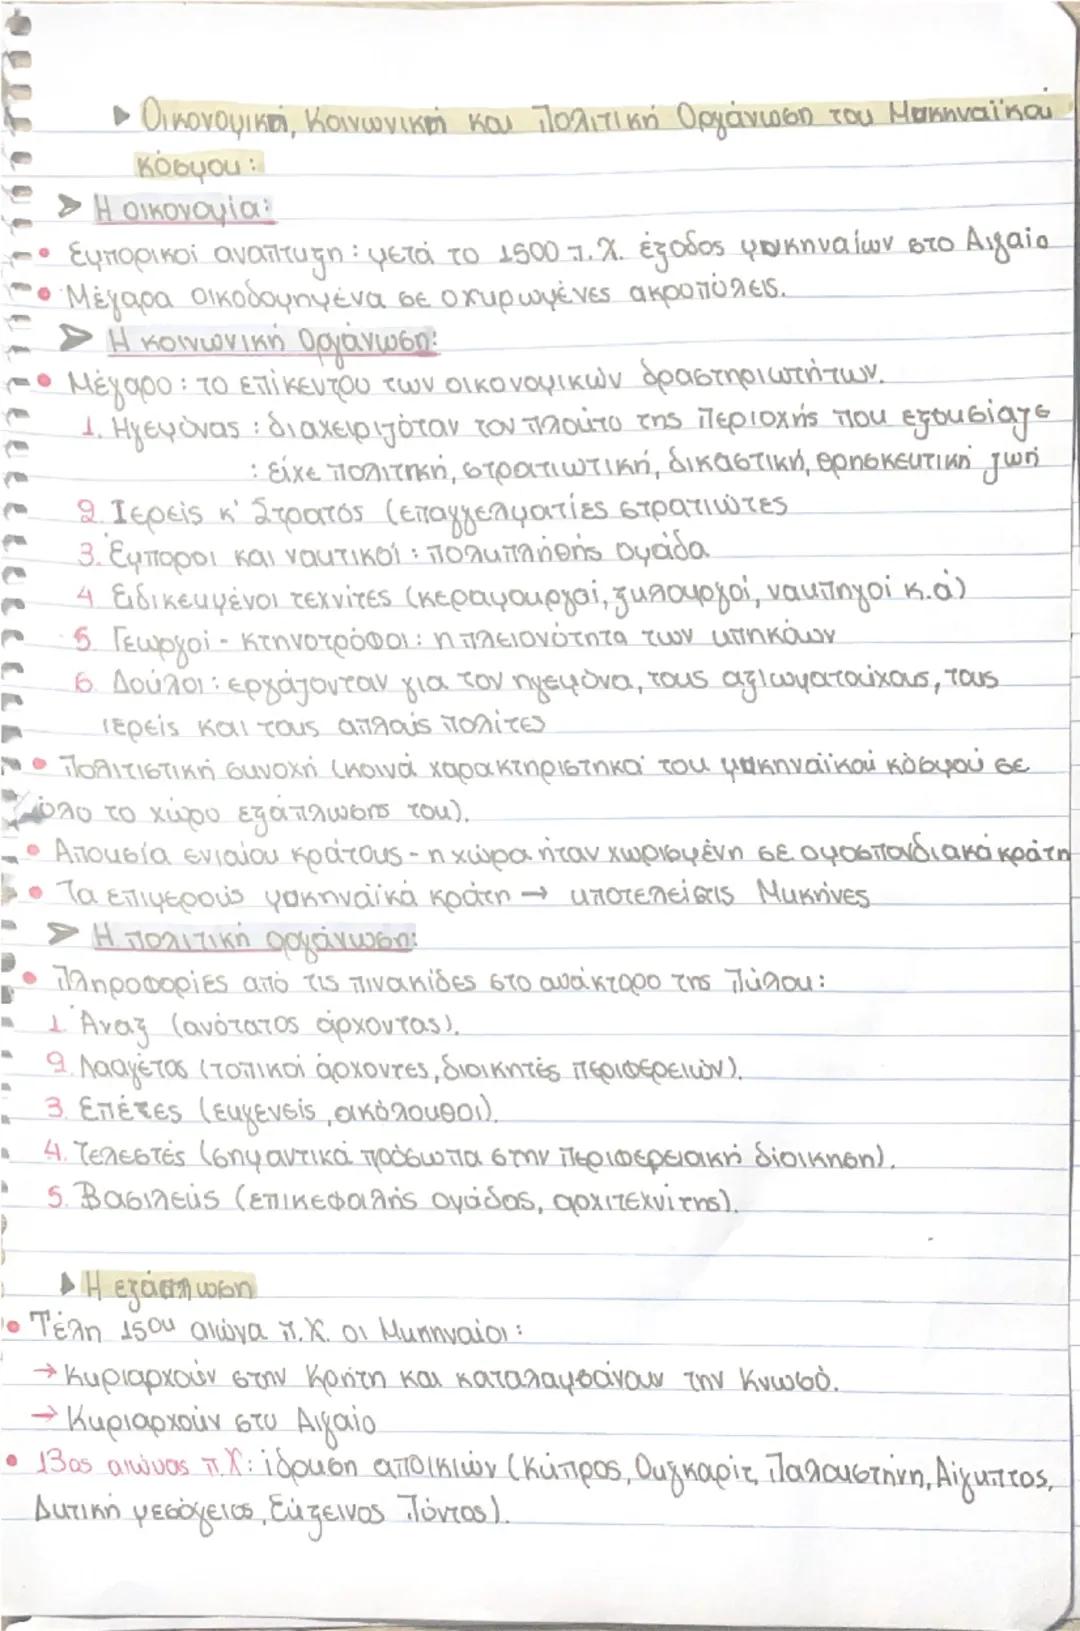 ▶ Οικονομική, Κοινωνική και Πολιτική Οργάνωση του Μυκηναϊκού
κόσμου:
➤ Η οικονομία:
• Εμπορικοί αναπτυξη: μετά το 1500 π.Χ. έξοδος μυκηναίων στο Αιγαίο
• Μέγαρα οικοδομημένα σε οχυρωμένες ακροπόλεις.
➤ Η κοινωνική Οργάνωση:
• Μέγαρο: το επίκεντρο των οικονομικών δραστηριωτήτων.
1. Ηγεμόνας: διαχειριζόταν τον πλούτο της περιοχής που εξουσίαζε
: είχε πολιτηκή, στρατιωτική, δικαστική, θρησκευτική ζωή
2. Ιερείς κ' Στρατός (επαγγελματίες στρατιώτες
3. Έμποροι και ναυτικοί: πολυπληθής ομάδα
4 Ειδικευμένοι τεχνίτες (κεραμουργοί, ξυλουργοί, ναυπηγοί κ.ά)
5 Γεωργοί - κτηνοτρόφοι: η πλειονότητα των υπηκόων
6 Δούλοι: εργάζονταν για τον ηγεμόνα, τους αξιωματούχους, τους
ιερείς και τους απλούς πολίτες
• Πολιτιστική συνοχή (κοινά χαρακτηριστηκά του μυκηναϊκού κόσμού σε
όλο το χώρο εξάπλωσης του).
• Απουσία ενιαίου κράτους - η χώρα ήταν χωρισμένη σε ομοσπονδιακά κράτη
• Τα επιμερούς μυκηναϊκά κράτη → υποτελείς στις Μυκήνες
➤ Η πολιτική οργάνωση:
• Πληροφορίες από τις πινακίδες στο ανάκτορο της Πύλου:
1 Άναξ (ανότατος άρχοντας).
2. Λααγέτας (τοπικοί άρχοντες, διοικητές περιφερειών).
3. Επέτες (ευγενείς, ακόλουθοι).
4. Τελεστές (σημαντικά πρόσωπα στην περιφερειακή διοίκηση).
5. Βασιλεύς (επικεφαλής ομάδας, αρχιτεχνίτης).
▶ Η εξάπλωση
• Τέλη 15ου αιώνα π.Χ. οι Μυκηναίοι:
→ Κυριαρχούν στην Κρήτη και καταλαμβάνουν την Κνωσό.
→ Κυριαρχούν στο Αιγαίο
• 13ος αιώνας π.Χ: ίδρυση αποικιών (Κύπρος, Ουγκαρίτ, Παλαιστήνη, Αίγυπτος,
Δυτική μεσόγειος, Εύξεινος Πόντος).